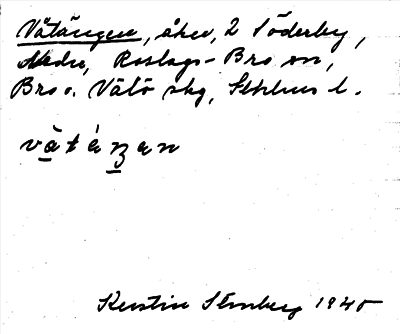 Våtängen, åker, 2 Söderby,
Nedre, Roslags-Bro sn,
Bro o. Vätö skg, Sthlms l.
våtéŋen
Kerstin Stenberg 1945